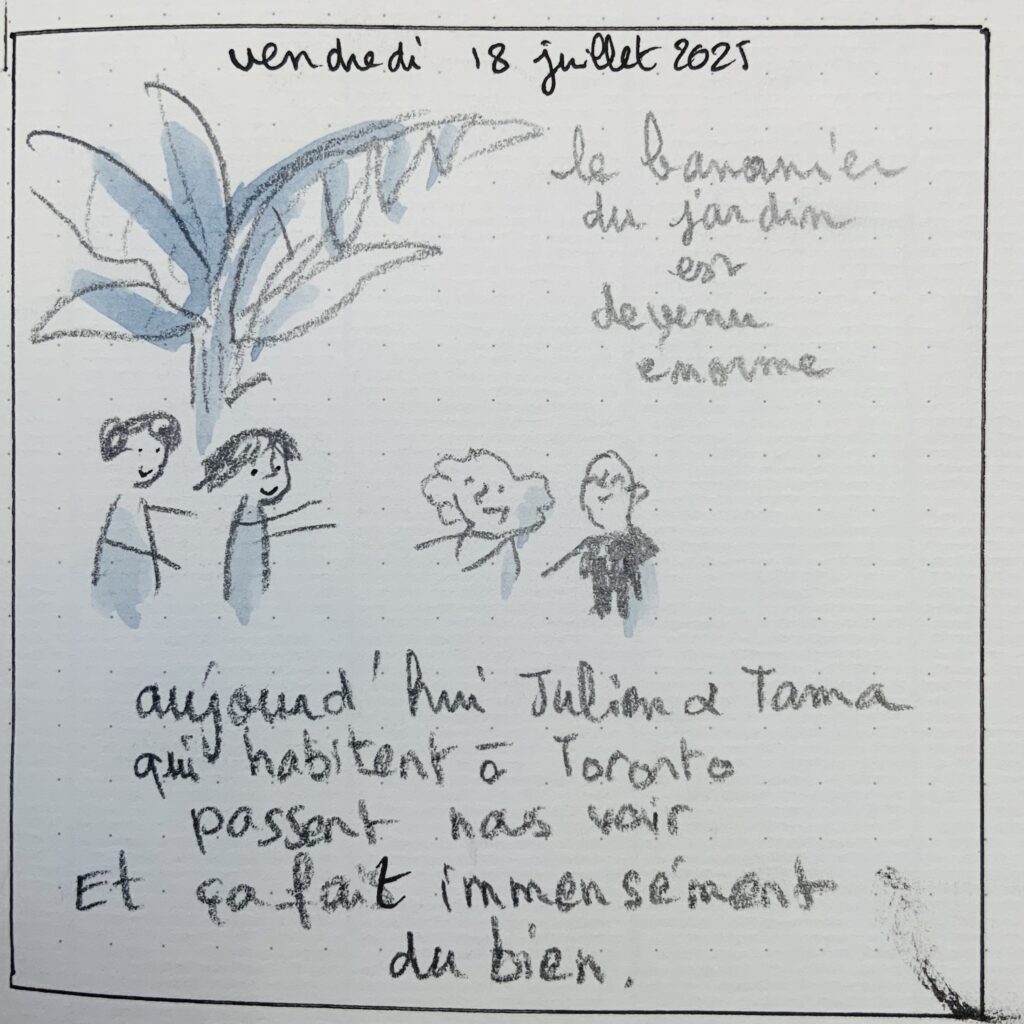 vendredi 18 juillet 2025
le bananier
du jardin
est
devenu
énorme
aujourd'hui Julien & Tama
qui habitent à Toronto
passent nous voir
Et ça fait immensément
du bien.